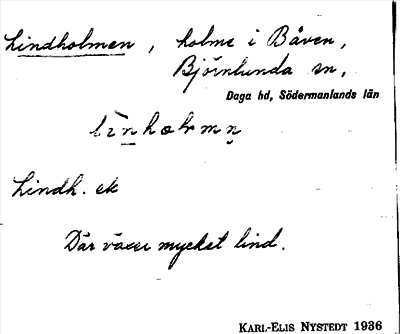 Lindholmen, holme i Båven,
Björnlunda sn,
Daga hd, Södermanlands län
Lindh. ek
Där växer mycket lind.
KARL-ELIS NYSTEDT 1936